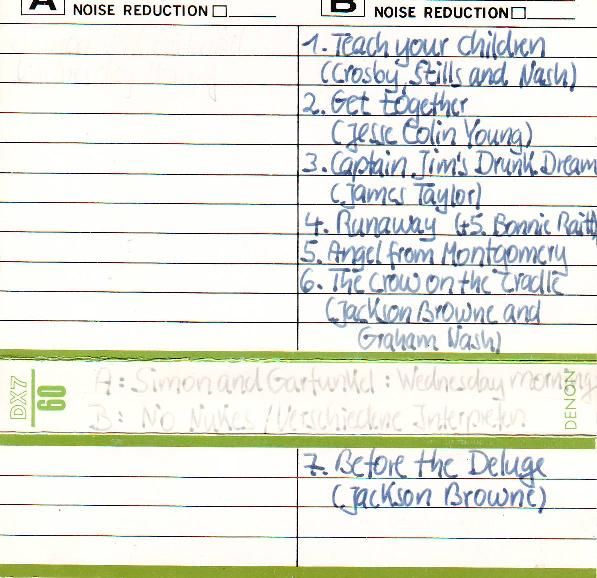 A NOISE REDUCTION
B NOISE REDUCTION
1. Teach your children
(Crosby, Stills and Nash)
2. Get together
(Jesse Colin Young)
3. Captain Jim's Drunk Dream
(James Taylor)
4. Runaway (+5. Bonnie Raitt)
5. Angel from Montgomery
6. The Crow on the Cradle
(Jackson Browne and
Graham Nash)
DX7
60
A: Simon and Garfunkel: Wednesday morning
B: No Nukes / Verschiedene Interpreten
DENON
7. Before the Deluge
(Jackson Browne)